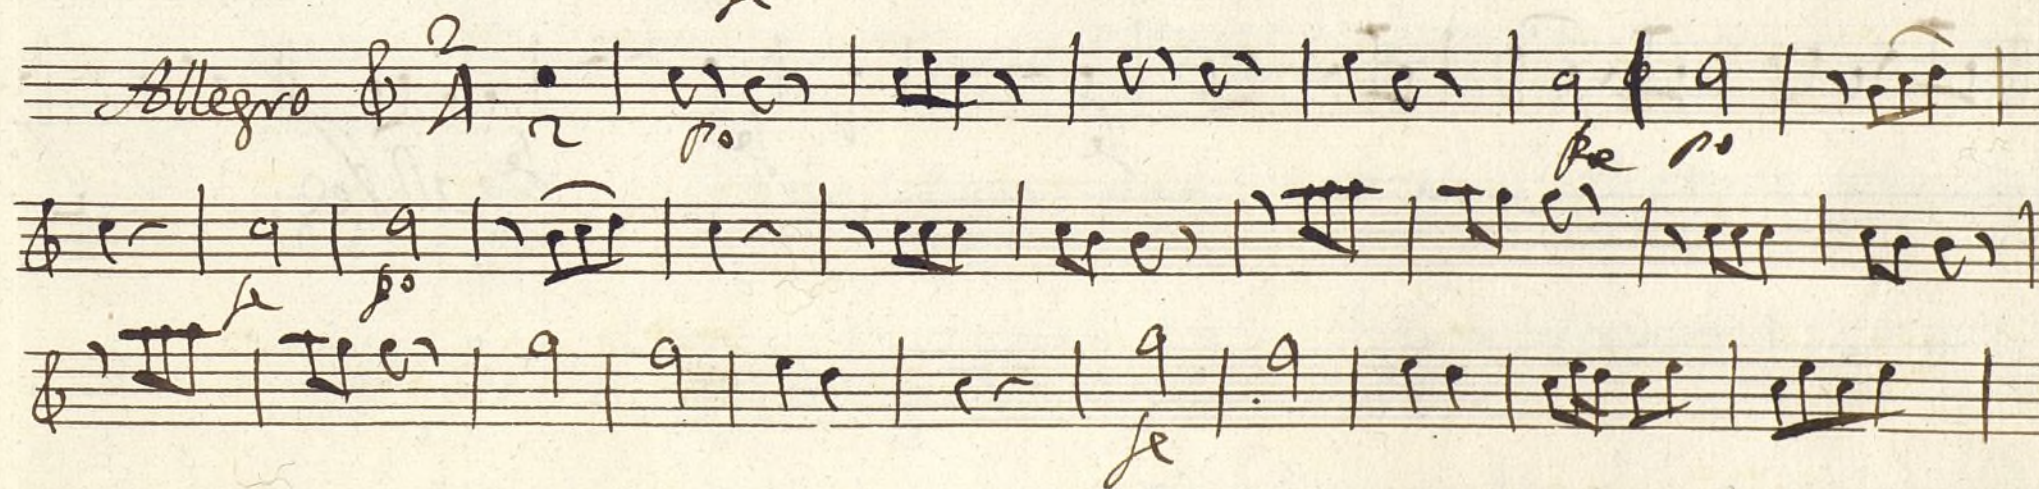 Allegro 2/4
2 po fe po
fe po
fe